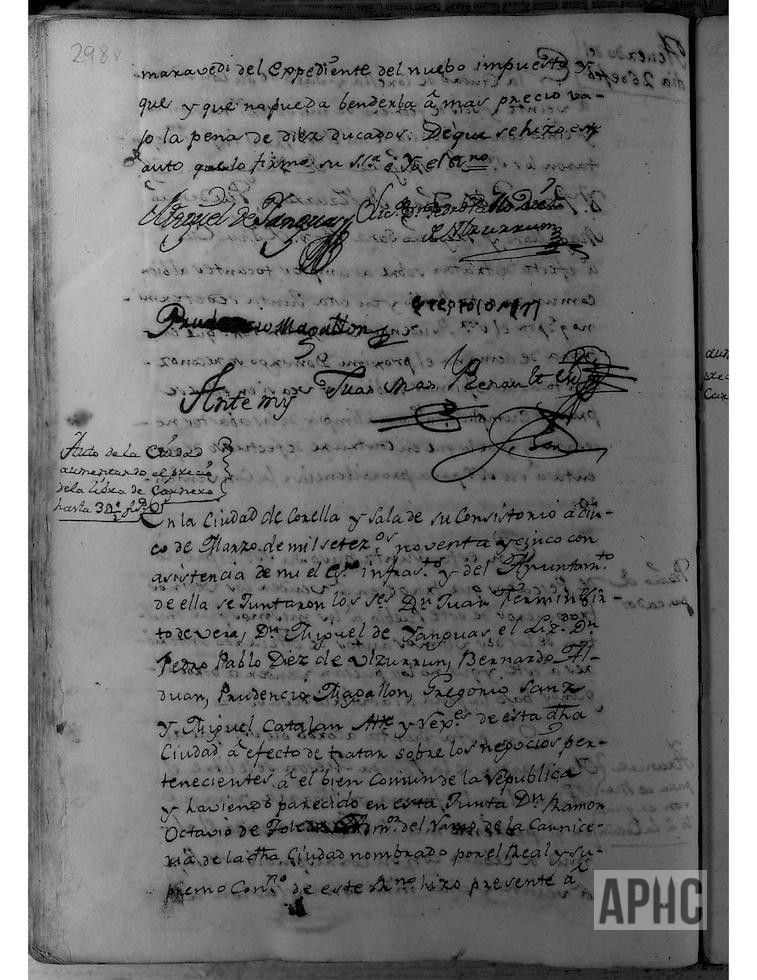 298v
maravedi del Expediente del nuebo impuesto, y
que y que no pueda benderla â mas precio va-
jo la pena de diez ducados: De que se hizo este
auto que lo firmo su S.ria é Yo el es.no
Miguel de Yanguas Lic.do D.n Pedro Pablo Diez
de Ulzurrun
Prudencio Magallon
Ante my Juas Mas Renault
Auto de la Ciudad
aumentando el precio
dela libra de Carnero
hasta
En la Ciudad de Corella y Sala de su Consistorio â cin-
co de Marzo de mil setez.os noventa y cinco con
asistencia de mi el es.no infras.to y del Ayuntam.to
de ella se Juntaron los S.es D.n Juan Fermin Vir-
to de Vera, D.n Miguel de Yanguas, el Liz.do D.n
Pedro Pablo Diez de Ulzurrun, Bernardo Al-
duan, Prudencio Magallon, Gregorio Sanz
y Miguel Catalan Alc.e y rex.es de esta dha
Ciudad â efecto de tratar sobre los negocios per-
tenecientes â el bien Comun de la republica
y haviendo parecido en esta Junta D.n Ramon
Octavio de Toledo Adm.or del Vamo de la Carnice-
ria de la dha Ciudad nombrado por el Real y Su-
premo Con.sejo de este R.no hizo presente â
APHC